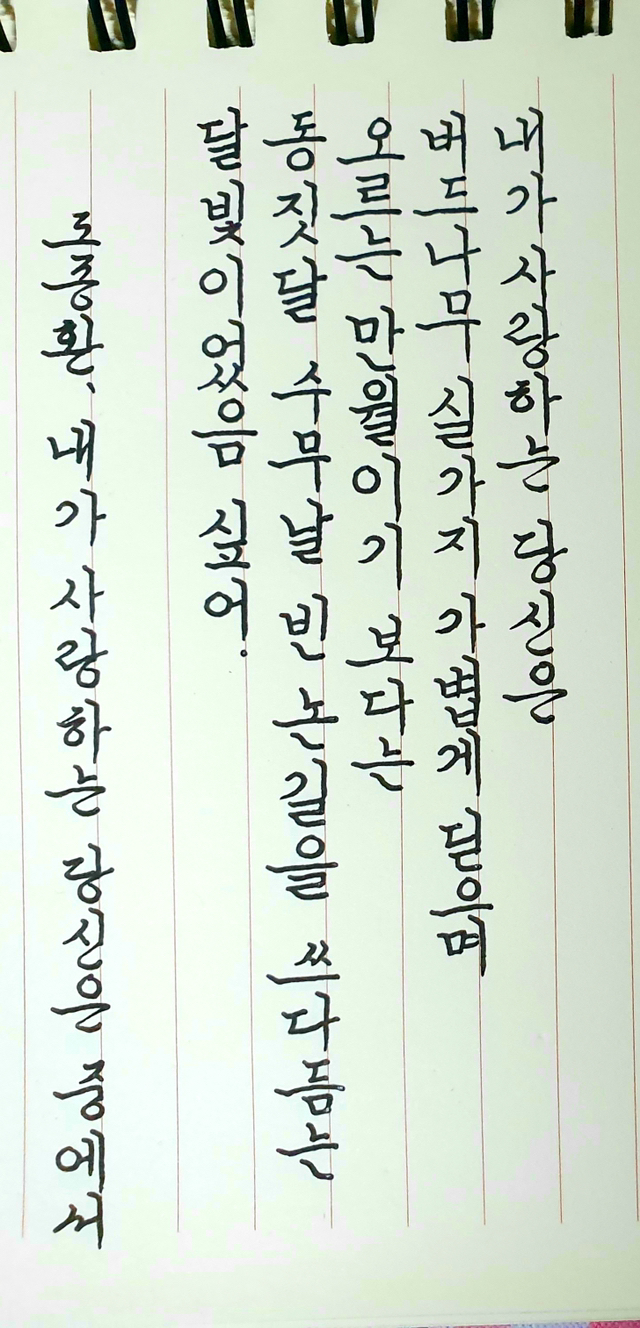 내가 사랑하는 당신은
버드나무 실가지 가볍게 딛으며
오르는 만월이기 보다는
동짓달 스무날 빈 논길을 쓰다듬는
달빛이었음 싶어.
도종환, 내가 사랑하는 당신은 중에서